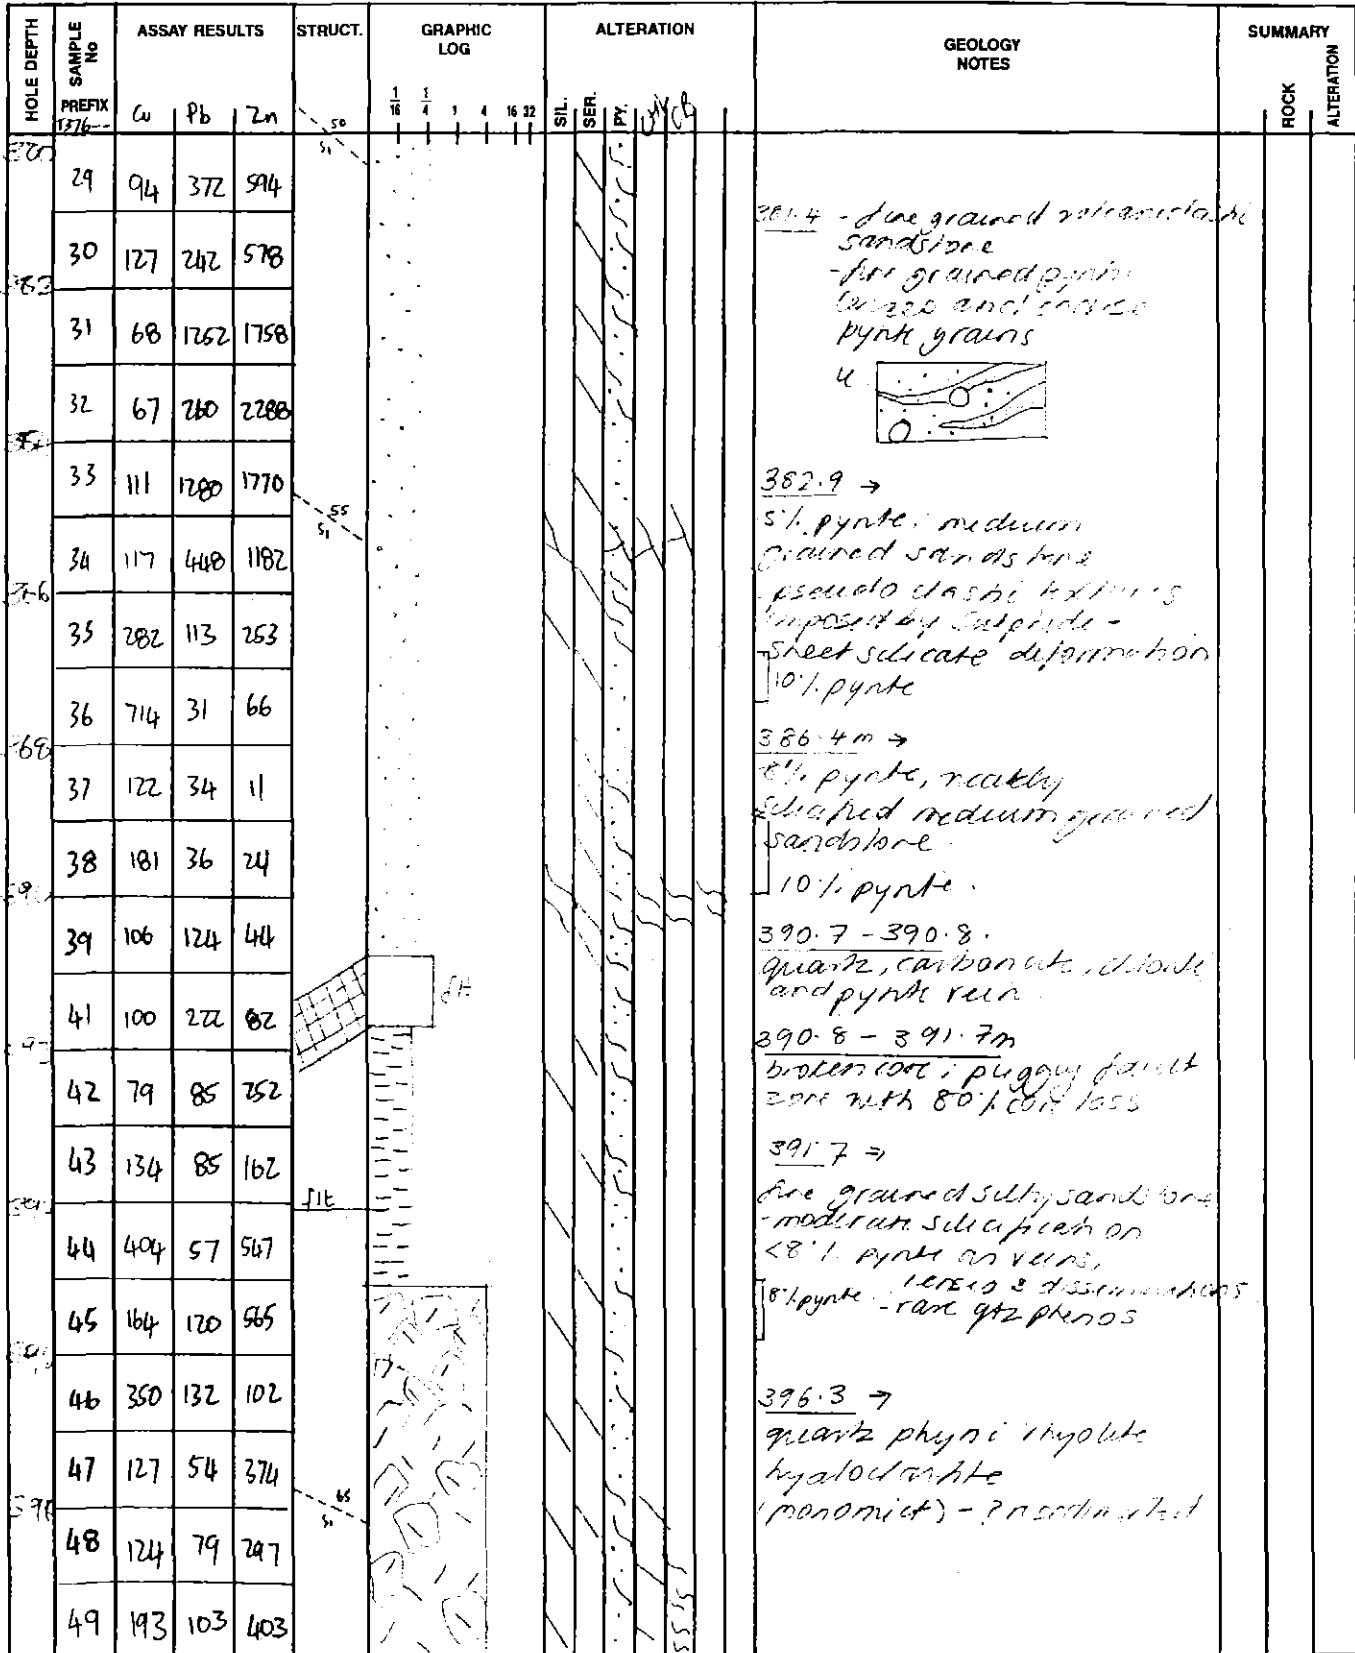 HOLE DEPTH
SAMPLE No
PREFIX
T376--
ASSAY RESULTS
Cu Pb Zn
STRUCT.
GRAPHIC LOG
1/16 1/4 1 4 16 32
ALTERATION
SIL. SER. PY.
GEOLOGY NOTES
SUMMARY
ROCK
ALTERATION
50
S1
29 94 372 594
30 127 242 578
383
31 68 1262 1758
32 67 260 2288
33 111 1280 1770
55
S1
34 117 448 1182
35 282 113 253
36 714 31 66
37 122 34 11
38 181 36 24
39 106 124 44
flt
41 100 222 82
42 79 85 252
43 134 85 162
flt
44 404 57 547
45 164 120 565
46 350 132 102
47 127 54 374
65
S1
48 124 79 297
49 193 103 403
381.4 - fine grained volcaniclastic
sandstone
- fine grained pyrite
lenses and coarse
pyrite grains
382.9 →
5% pyrite; medium
grained sandstone
pseudo clastic textures
imposed by sulphide -
sheet silicate deformation
10% pyrite
386.4m →
8% pyrite, weakly
silicified medium grained
sandstone
10% pyrite.
390.7 - 390.8.
quartz, carbonate, chlorite
and pyrite vein
390.8 - 391.7m
broken core; puggy fault
zone with 80% core loss
391.7 ⇒
fine grained silty sandstone
- moderate silicification
<8% pyrite as veins,
lenses & disseminations
8% pyrite
- rare qtz phenos
396.3 →
quartz phyric rhyolite
hyaloclastite
(monomict) -